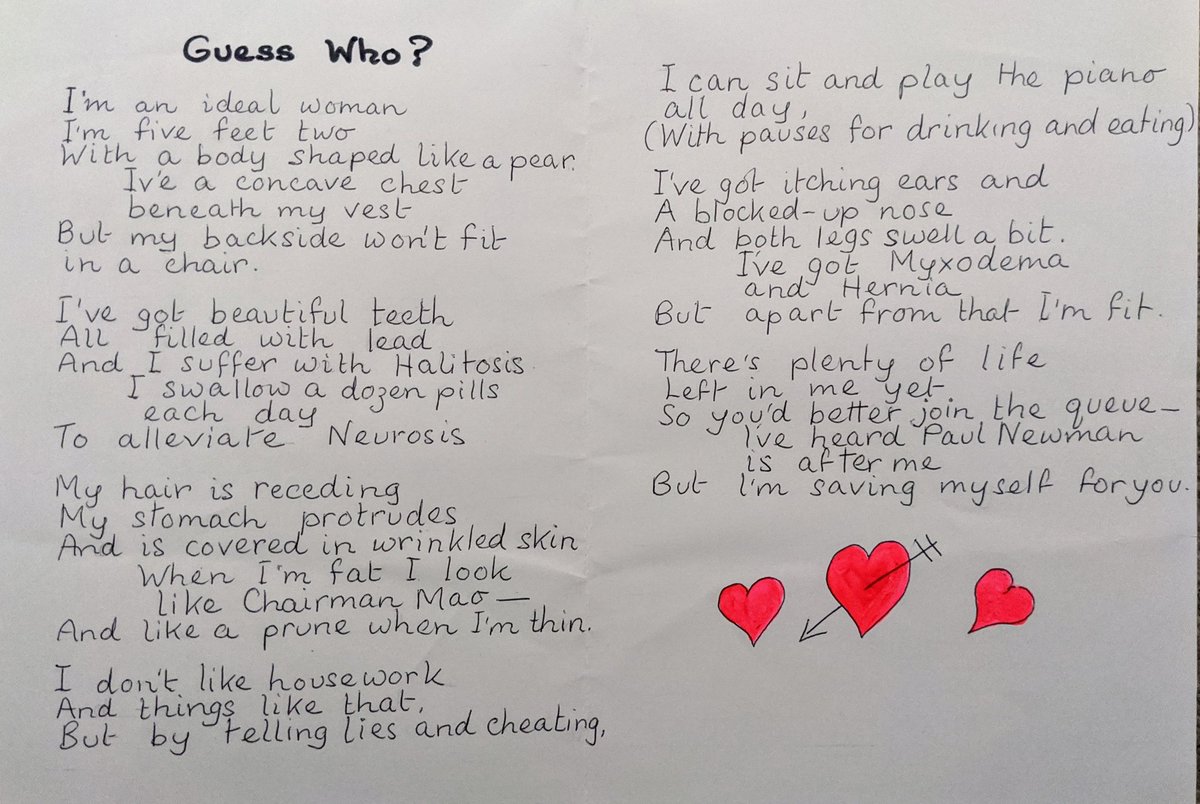 Guess Who?
I'm an ideal woman
I'm five feet two
With a body shaped like a pear.
Iv'e a concave chest
beneath my vest
But my backside won't fit
in a chair.
I've got beautiful teeth
All filled with lead
And I suffer with Halitosis.
I swallow a dozen pills
each day
To alleviate Neurosis
My hair is receding
My stomach protrudes
And is covered in wrinkled skin
When I'm fat I look
like Chairman Mao—
And like a prune when I'm thin.
I don't like housework
And things like that,
But by telling lies and cheating,
I can sit and play the piano
all day,
(With pauses for drinking and eating)
I've got itching ears and
A blocked-up nose
And both legs swell a bit.
I've got Myxodema
and Hernia
But apart from that I'm fit.
There's plenty of life
Left in me yet
So you'd better join the queue—
I've heard Paul Newman
is after me
But I'm saving myself for you.